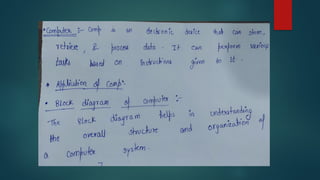 • Computer :- Comp is an electronic device that can store,
retrieve, & process data. It can perform various
tasks based on instructions given to it.
• Application of Comp.
• Block diagram of computer :-
The Block diagram helps in understanding
the overall structure and organization of
a computer system.